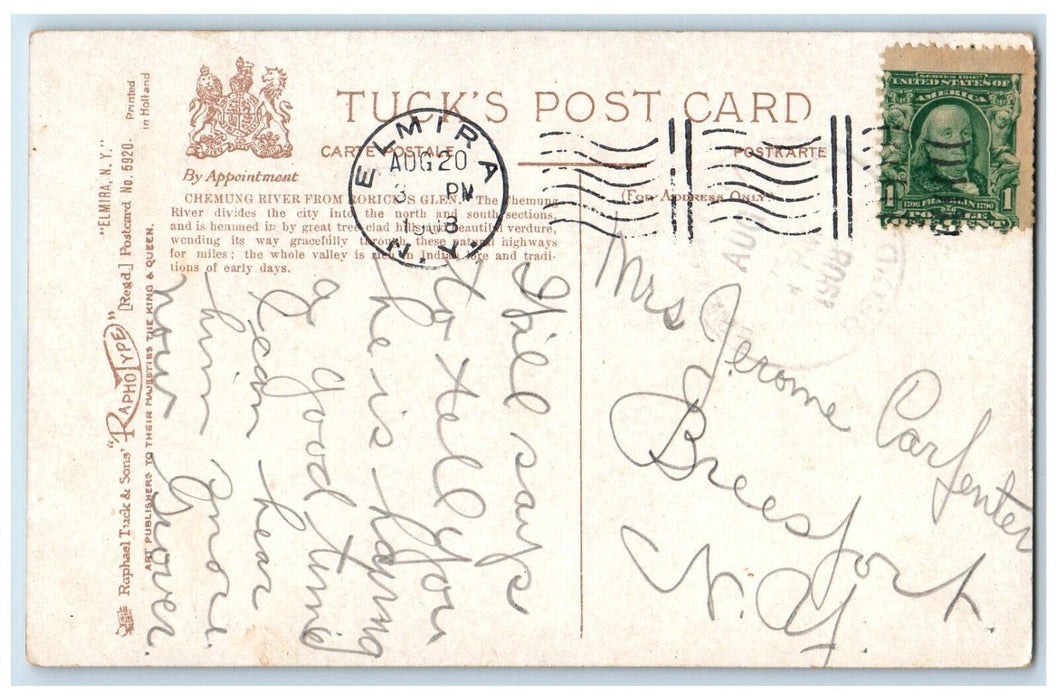 TUCK'S POST CARD
CARTE POSTALE
POSTKARTE
By Appointment
(FOR ADDRESS ONLY)
CHEMUNG RIVER FROM RORICK'S GLEN. The Chemung
River divides the city into the north and south sections,
and is hemmed in by great tree clad hills and beautiful verdure,
wending its way gracefully through these natural highways
for miles; the whole valley is rich in Indian lore and tradi-
tions of early days.
ELMIRA
AUG 20
3 PM
N.Y.
SERIES 1902
UNITED STATES OF
AMERICA
1 1
1706 FRANKLIN 1790
POSTAGE
AUG
1908
REC'D
Mrs Jerome Carpenter
Breesport.
N. Y.
Will says
to tell you
he is having
a good time
can hear
him more
now Grover.
"ELMIRA, N.Y."
Printed
in Holland
Raphael Tuck & Sons' "RAPHOTYPE" [Regd.] Postcard No. 5920.
ART PUBLISHERS TO THEIR MAJESTIES THE KING & QUEEN.